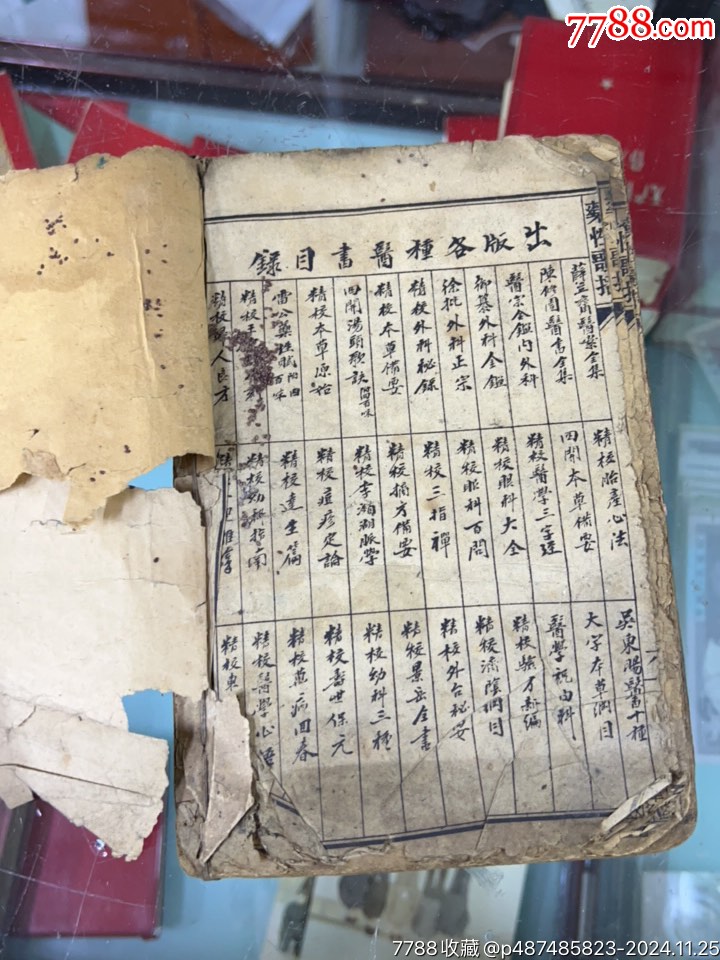 7788.com
出版各種醫書目錄
薛立齋醫案全集
陳修園醫書全集
醫宗金鑑內外科
御纂外科金鑑
徐批外科正宗
精校外科秘錄
精校本草備要
四開湯頭歌訣
精校本草原始
雷公藥性賦
精校
人良方
精校胎產心法
四開本草備要
精校醫學三字經
精校眼科大全
精校眼科百問
精校三指禪
精校摘方備要
精校李瀕湖脈學
精校痘疹定論
精校達生篇
精校幼科指南
吳東暘醫書十種
大字本草綱目
醫學祝由科
精校驗方新編
精校濟陰綱目
精校外台秘要
精校景岳全書
精校幼科三種
精校壽世保元
精校萬病回春
精校醫學心悟
精校東
7788收藏@p487485823-2024.11.25